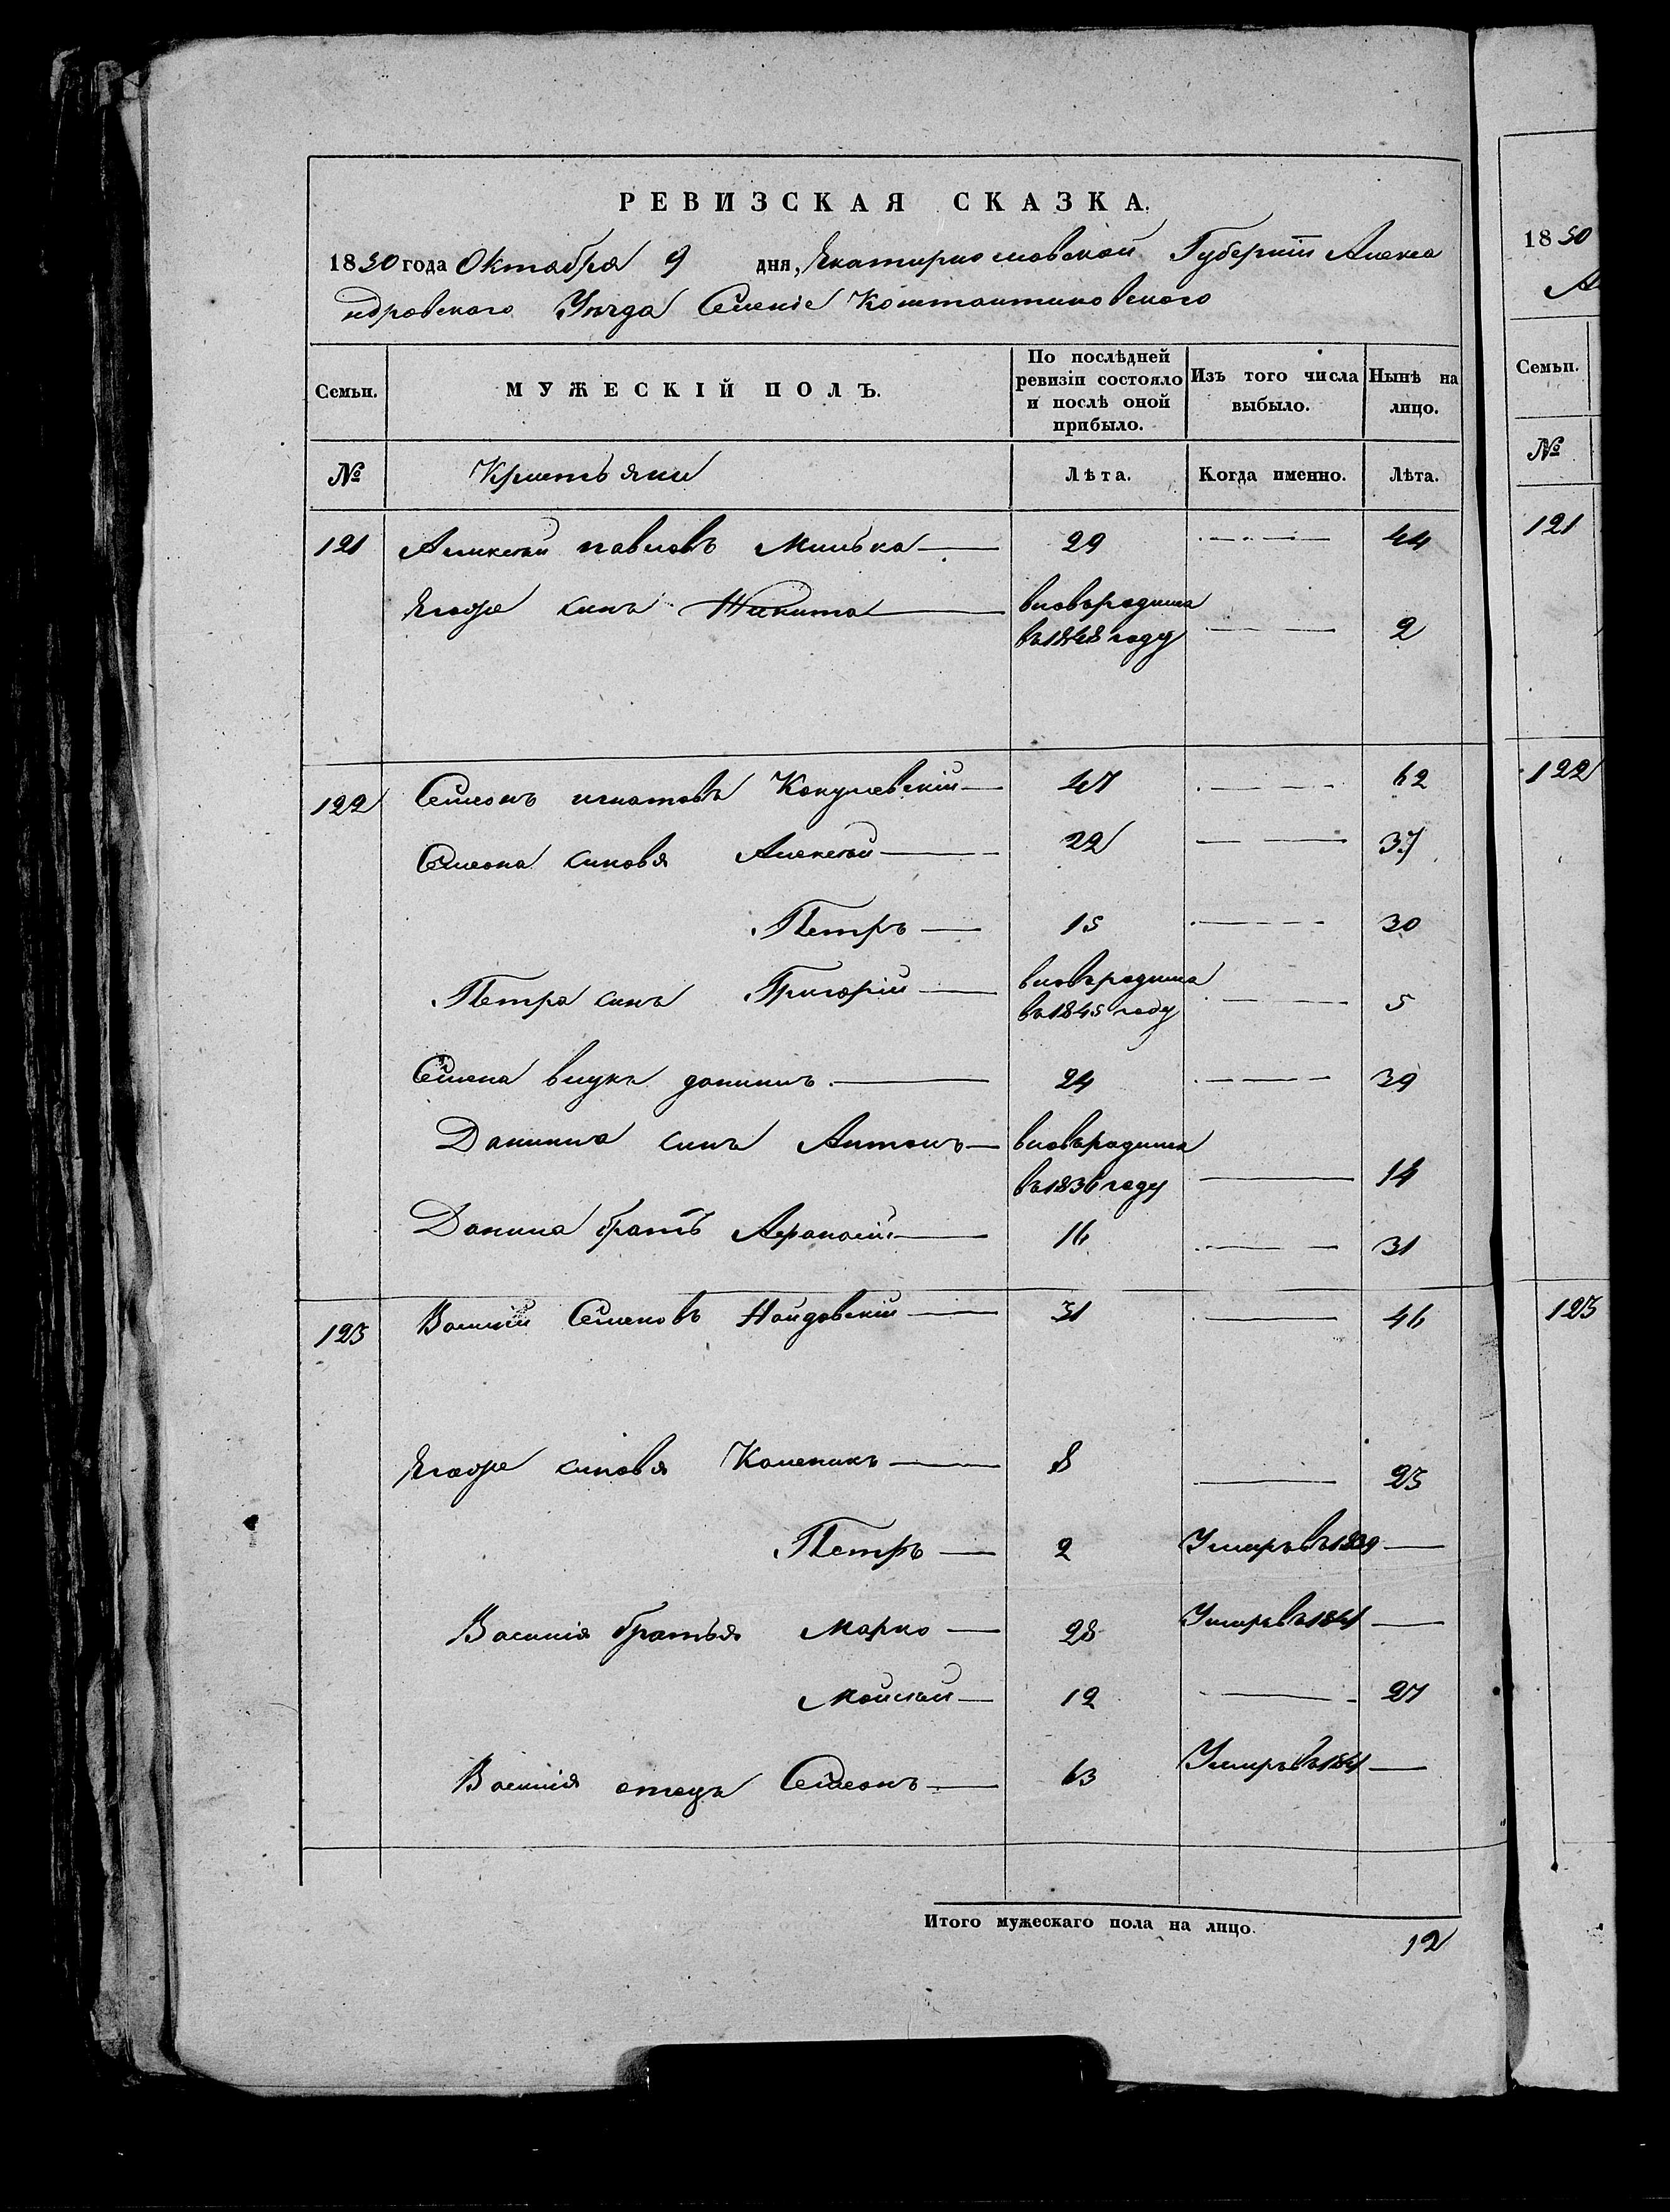 РЕВИЗСКАЯ СКАЗКА.
1850 года Октабра 9 дня, Екатирнославской Губерніи Алекса
ндровского Уезда Селеніе Константиновского
Семьи.
МУЖЕСКІЙ ПОЛЪ.
По послѣдней ревизіи состояло и послѣ оной прибыло.
Изъ того числа выбыло.
Нынѣ на лицо.
№ Кристьяни Лѣта. Когда именно. Лѣта.
121 Аликсѣй павловъ Милька 29 44
Егоже синъ Никита вновьродился
въ1848 году 2
122 Семионъ игнатовъ 47 62
Семиона синовья Алексѣй 22 37
Петръ 15 30
Петра синъ Григорій вновьродился
въ1845 году 5
Семена внукъ данилъ 24 39
Данила синъ Антонъ вновьродился
въ1836 году 14
Данила братъ Афанасій 16 31
123 Василій Семеновъ Найдовскій 31 46
Егоже синовья 8 23
Петръ 2 Умиръвъ1839
Василія братья Марко 28 Умиръвъ1841
Мойсѣй 12 27
Василія отецъ Семионъ 63 Умиръвъ1841
Итого мужескаго пола на лицо.
12
1850
Ал
Семьи.
№
121
122
123